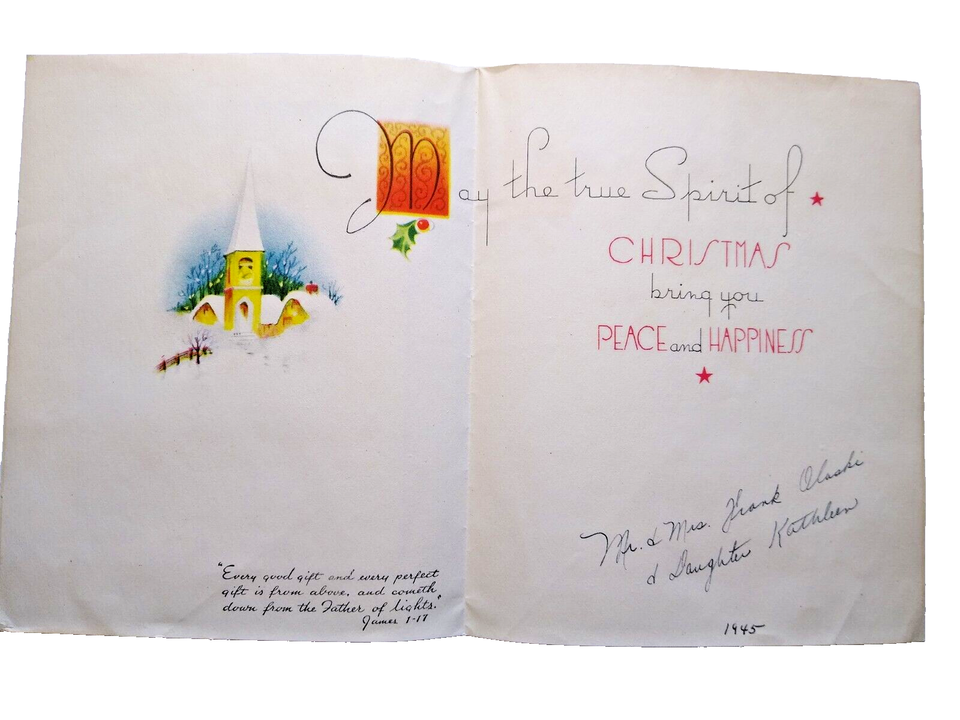 May the true Spirit of
CHRISTMAS
bring you
PEACE and HAPPINESS
Mr. & Mrs. Frank Olaski
& Daughter Kathleen
1945
"Every good gift and every perfect
gift is from above, and cometh
down from the Father of lights."
James 1-17